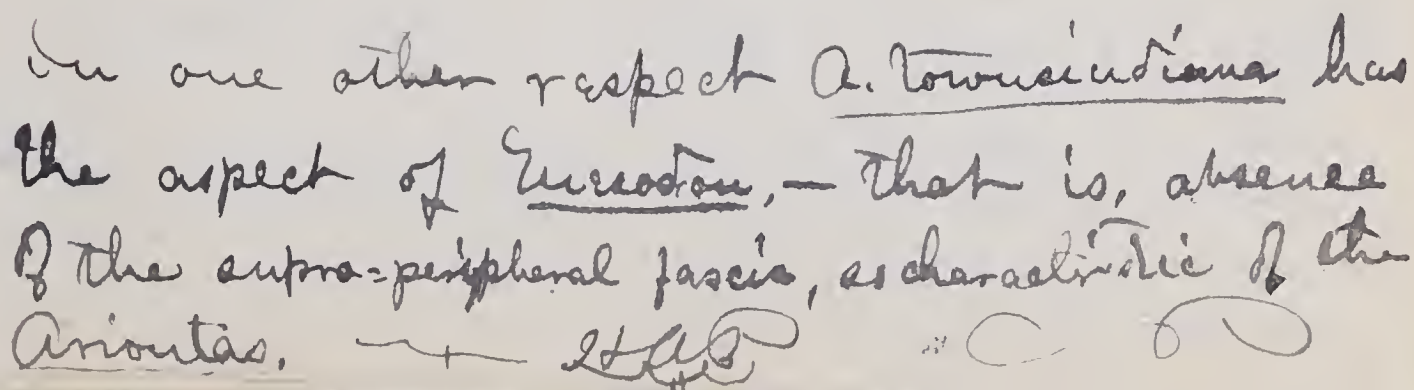 In one other respect A. townsendiana has
the aspect of — that is, absence
of the supra-peripheral fascia, as characteristic of the
Ariontas.